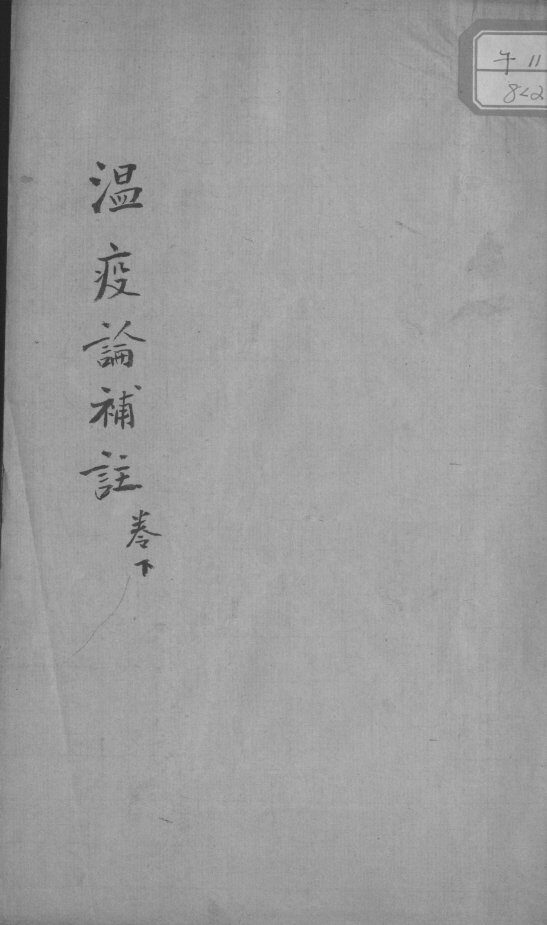 温疫論補註
卷下
午 11
822